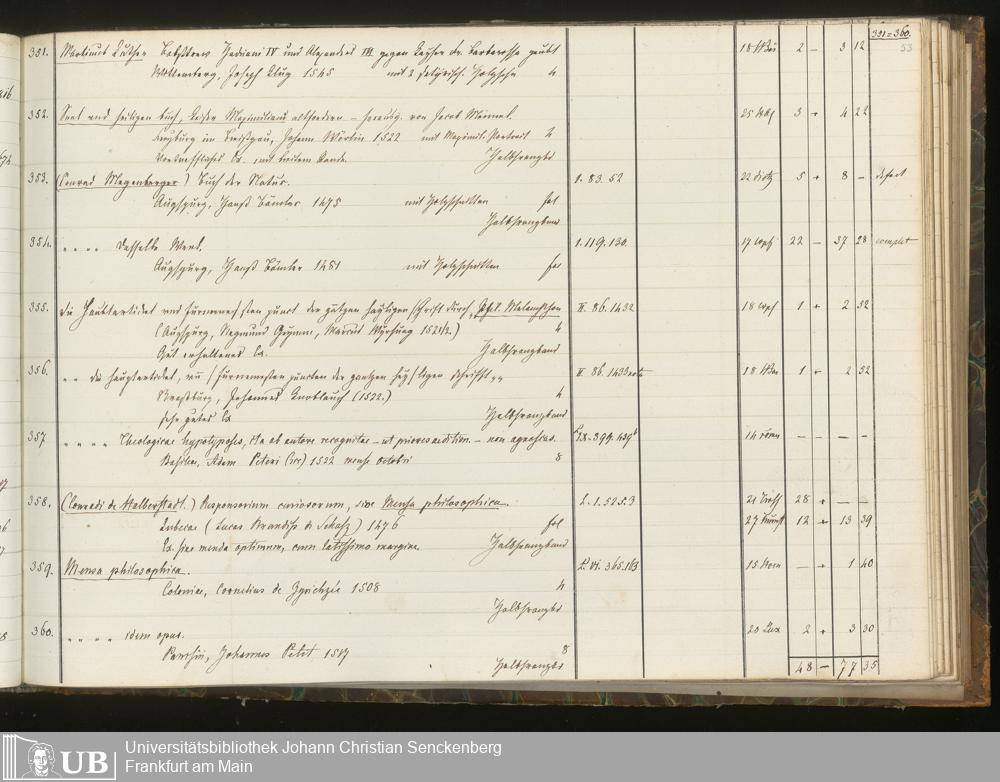 351=360.
53
351. Martinus Luther Babsttrew Hadriani IV und Alexanders III gegen Keyser Fr. Barbarossa geübt 18 2 – 3 12
Wittemberg, Joseph Klug 1545 mit 2 Holzschn 4
352. Seel und heiligen buch, Keiser Maximilians altfordern – von Jacob Mennel. 25 3 + 4 22
Freyburg im Breißgau, Johann Wörlin 1522 mit Maximil. Portrait 2
Vortreffliches Ex. mit breitem Rande. Halbfranzbd
353. (Conrad Megenberger) Buch der Natur. 1. 83. 52 22 5 + 8 – defect
Augspurg, Hanß Bämler 1475 mit Holzschnitten fol
Halbfranzband
354. „ „ „ „ Dasselbe Werk. 1. 119. 130. 17 22 – 37 28 complet
Augspurg, Hanß Bämler 1481 mit Holzschnitten fol
355. Die Hauptartickel und fürnemesten punct der gantzen hayligen schrifft durch Phil. Melanchthon II. 86. 1432 18 1 + 2 52
(Augspurg, Sygmund Grymm, Marcus Wyrsung 1521/2.) 4
Gut erhaltenes Ex. Halbfranzband
356. „ „ die hauptartickel, un̄ fürnemesten puncten der gantzen heyligen schrifft „ „ II. 86. 1433 18 1 + 2 52
Straßburg, Johannes Knoblauch (1522.) 4
sehr gutes Ex Halbfranzband
357 „ „ „ „ Theologicae hypotyposes, ab autore recognitae – ut priorem aeditionem – non agnoscas. IX. 399. 439b 14 – – – –
Basileae, Adam Petri (sic) 1522 mense octobri 8
358. (Conradi de Halberstadt.) Responsorium curiosorum, sive Mensa philosophica. 2. 1. 525. 3 21 28 + – –
Lubecae (Lucas Brandis de Schasz) 1476 fol 27 12 + 13 39
Ex. sine menda optimum, cum latissimo margine. Halbfranzband
359. Mensa philosophica. VI. 365. 163 15 Horn – + 1 40
Coloniae, Cornelius de Zyrichzee 1508 4
Halbfranzbd
360. „ „ „ „ idem opus. 23 2 + 3 30
Parrhisii, Johannes Petit, 1517 8
Halbfranzbd 48 – 77 35
UB
Universitätsbibliothek Johann Christian Senckenberg
Frankfurt am Main